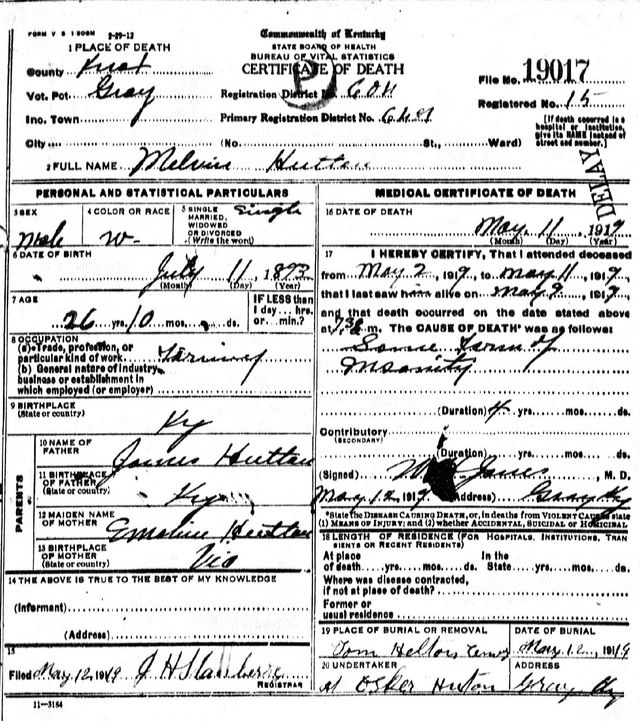 FORM V S 1 500M 2-29-12
Commonwealth of Kentucky
STATE BOARD OF HEALTH
BUREAU OF VITAL STATISTICS
CERTIFICATE OF DEATH
1 PLACE OF DEATH
County Knox
Vot. Pct. Gray
Inc. Town
City
Registration District No.
Primary Registration District No.
(No. St., Ward)
File No. 19017
Registered No. 15
[If death occurred in a
hospital or institution,
give its NAME instead of
street and number.]
DELAY
2 FULL NAME Melvin Hutton
PERSONAL AND STATISTICAL PARTICULARS
3 SEX Male
4 COLOR OR RACE W
5 SINGLE
MARRIED,
WIDOWED
OR DIVORCED
(Write the word)
Single
6 DATE OF BIRTH
July 11, 1893
(Month) (Day) (Year)
7 AGE
26 yrs. 10 mos. ds.
IF LESS than
1 day... hrs.
or... min.?
8 OCCUPATION
(a) Trade, profession, or
particular kind of work
(b) General nature of industry,
business or establishment in
which employed (or employer)
9 BIRTHPLACE
(State or country)
Ky
PARENTS
10 NAME OF
FATHER
James Hutton
11 BIRTHPLACE
OF FATHER
(State or country)
Ky
12 MAIDEN NAME
OF MOTHER
Emeline Hutton
13 BIRTHPLACE
OF MOTHER
(State or country)
Via
14 THE ABOVE IS TRUE TO THE BEST OF MY KNOWLEDGE
(Informant)
(Address)
15
Filed May 12 1919 J H
REGISTRAR
11-3184
MEDICAL CERTIFICATE OF DEATH
16 DATE OF DEATH
May 11, 1919
(Month) (Day) (Year)
17 I HEREBY CERTIFY, That I attended deceased
from May 2, 1919, to May 11, 1919,
that I last saw him alive on May 9, 1919,
and that death occurred on the date stated above
at m. The CAUSE OF DEATH* was as follows:
Some Form of
Insanity
(Duration) 4 yrs. mos. ds.
Contributory
(SECONDARY)
(Duration) yrs. mos. ds.
(Signed) Jones, M. D.
May 12, 1919 (Address) Gray Ky
*State the DISEASE CAUSING DEATH, or, in deaths from VIOLENT CAUSES state
(1) MEANS OF INJURY; and (2) whether ACCIDENTAL, SUICIDAL or HOMICIDAL
18 LENGTH OF RESIDENCE (FOR HOSPITALS, INSTITUTIONS, TRAN
SIENTS OR RECENT RESIDENTS)
At place In the
of death yrs. mos. ds. State yrs. mos. ds.
Where was disease contracted,
if not at place of death?
Former or
usual residence
19 PLACE OF BURIAL OR REMOVAL
Tom Helton
DATE OF BURIAL
May 12, 1919
20 UNDERTAKER
Hutton
ADDRESS
Gray Ky